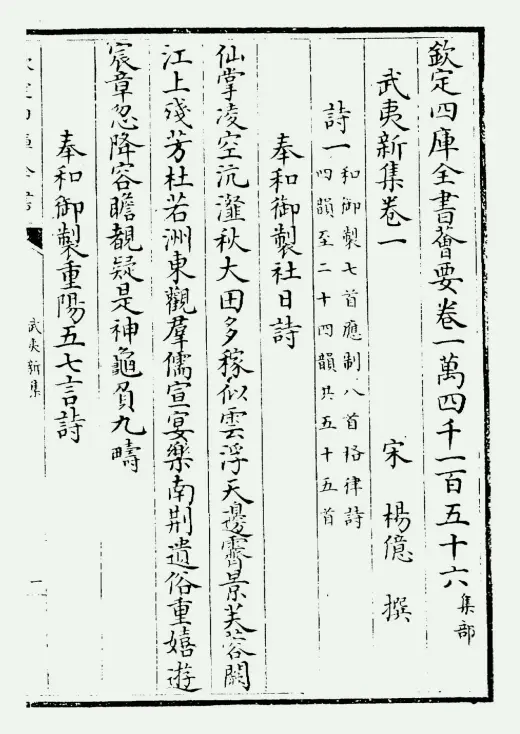 欽定四庫全書薈要卷一萬四千一百五十六 集部
武夷新集卷一 宋 楊億 撰
詩一 和御製七首應制八首格律詩
四韻至二十四韻共五十五首
奉和御製社日詩
仙掌凌空沆瀣秋大田多稼似雲浮天邊霽景芙蓉闕
江上殘芳杜若洲東觀羣儒宣宴樂南荆遺俗重嬉遊
宸章忽降容瞻覩疑是神龜負九疇
奉和御製重陽五七言詩
武夷新集
一